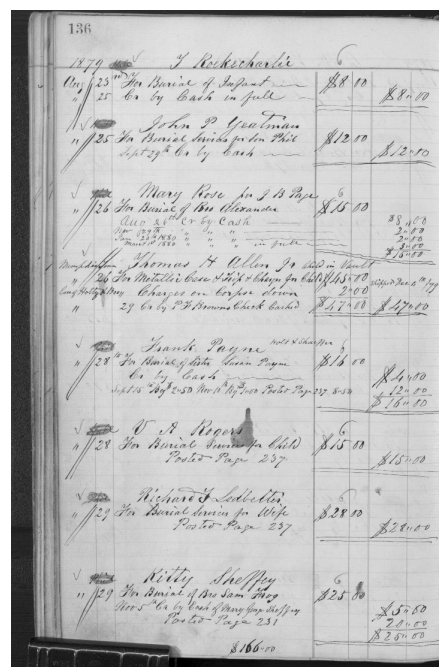 136
1879 T Rockecharlie 6
Aug 23rd For Burial of Infant $8 00
" 25 Cr by Cash in full $8"00
John P Yeatman
" 25 For Burial Services for Son Phil $12 00
Sept 29th Cr by Cash $12"00
Mary Rose for J B Page 6
" 26 For Burial of Bro Alexander $15 00
Aug 26th Cr by Cash $8"00
Nov 29th " " " 2"00
Jan 24th 1880 " " " 2"00
March 1880 " " " in full 3"00
$15"00
Thomas H Allen Jr Child in Vault
" 26 For Metallic Case & Child $45"00
Charges on Corpse down 2"00
" 29 Cr by P F Browns Check Cashed $47"00 $47"00
Frank Payne
" 28th For Burial of Sister Susan Payne $16 00
Cr by Cash $4"00
Sept 15th By $ 2-50 Nov By $ Posted Page 237 8-50 12"00
$16"00
V A Rogers 6
" 28 For Burial Services for Child $15 00
Posted Page 237 $15"00
Richard F Ledbetter 6
" 29 For Burial Services for Wife $28 00
Posted Page 237 $28"00
Kitty Sheffey 6
" 29 For Burial of Bro Sam $25 00
Nov 5th Cr by Cash of Mary Sheffey $5"00
Posted Page 231 20"00
$25"00
$166"00